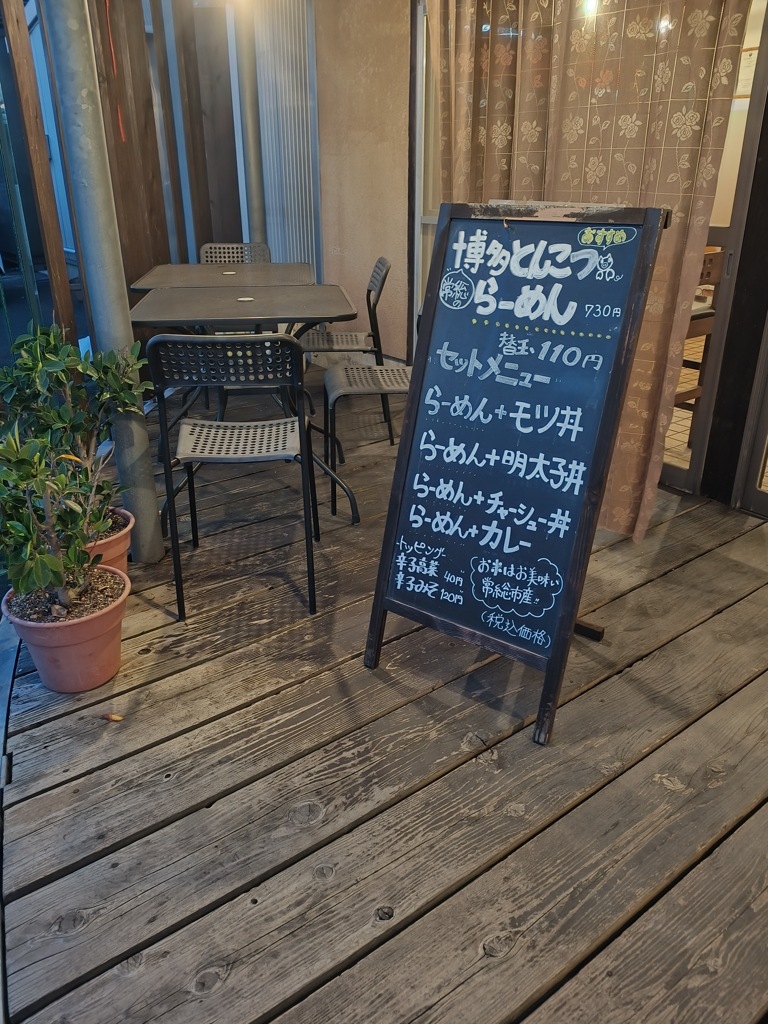 おすすめ
博多とんこつ
常総の
らーめん 730円
替玉・110円
セットメニュー
らーめん+モツ丼
らーめん+明太子丼
らーめん+チャーシュー丼
らーめん+カレー
トッピング
辛子高菜 40円
辛子みそ 120円
お米はお美味い
常総市産!!
(税込価格)